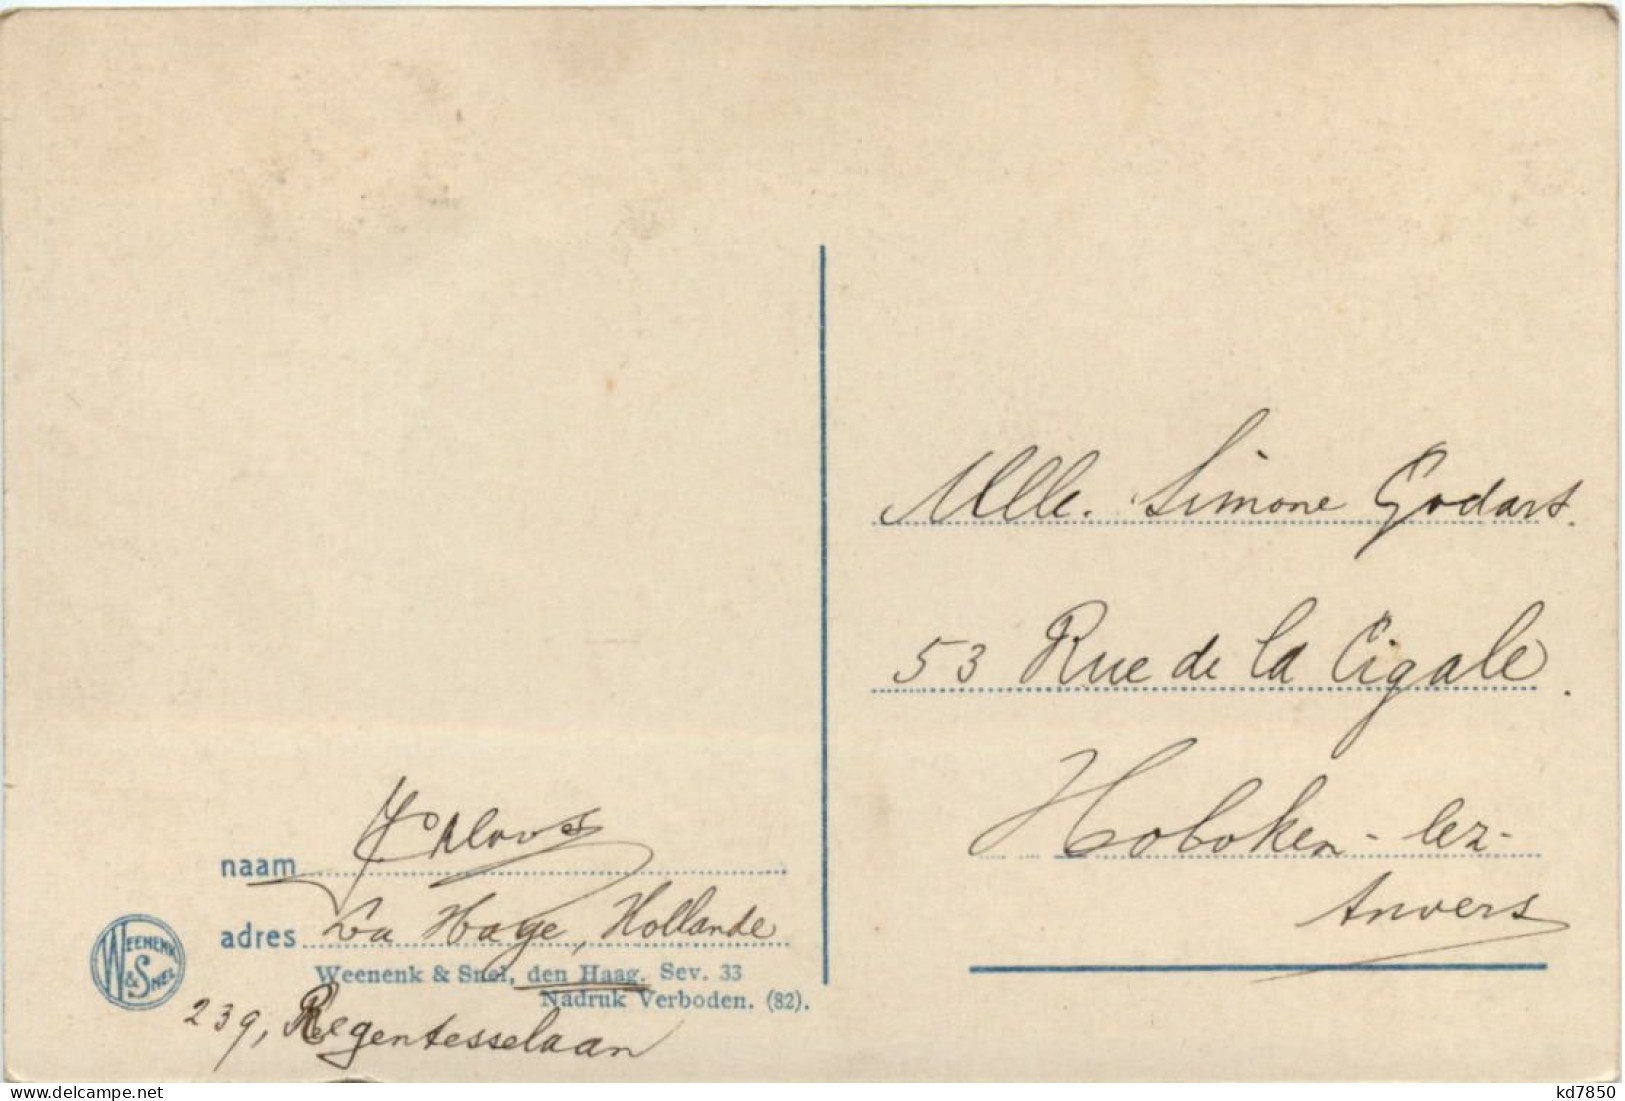 Mlle. Simone Godart.
53 Rue de la Cigale.
Hoboken-lez-
Anvers
naam
adres La Haye, Hollande
WEENENK & SNEL
Weenenk & Snel, den Haag. Sev. 33
Nadruk Verboden. (82).
239, Regentesselaan
www.delcampe.net
kd7850